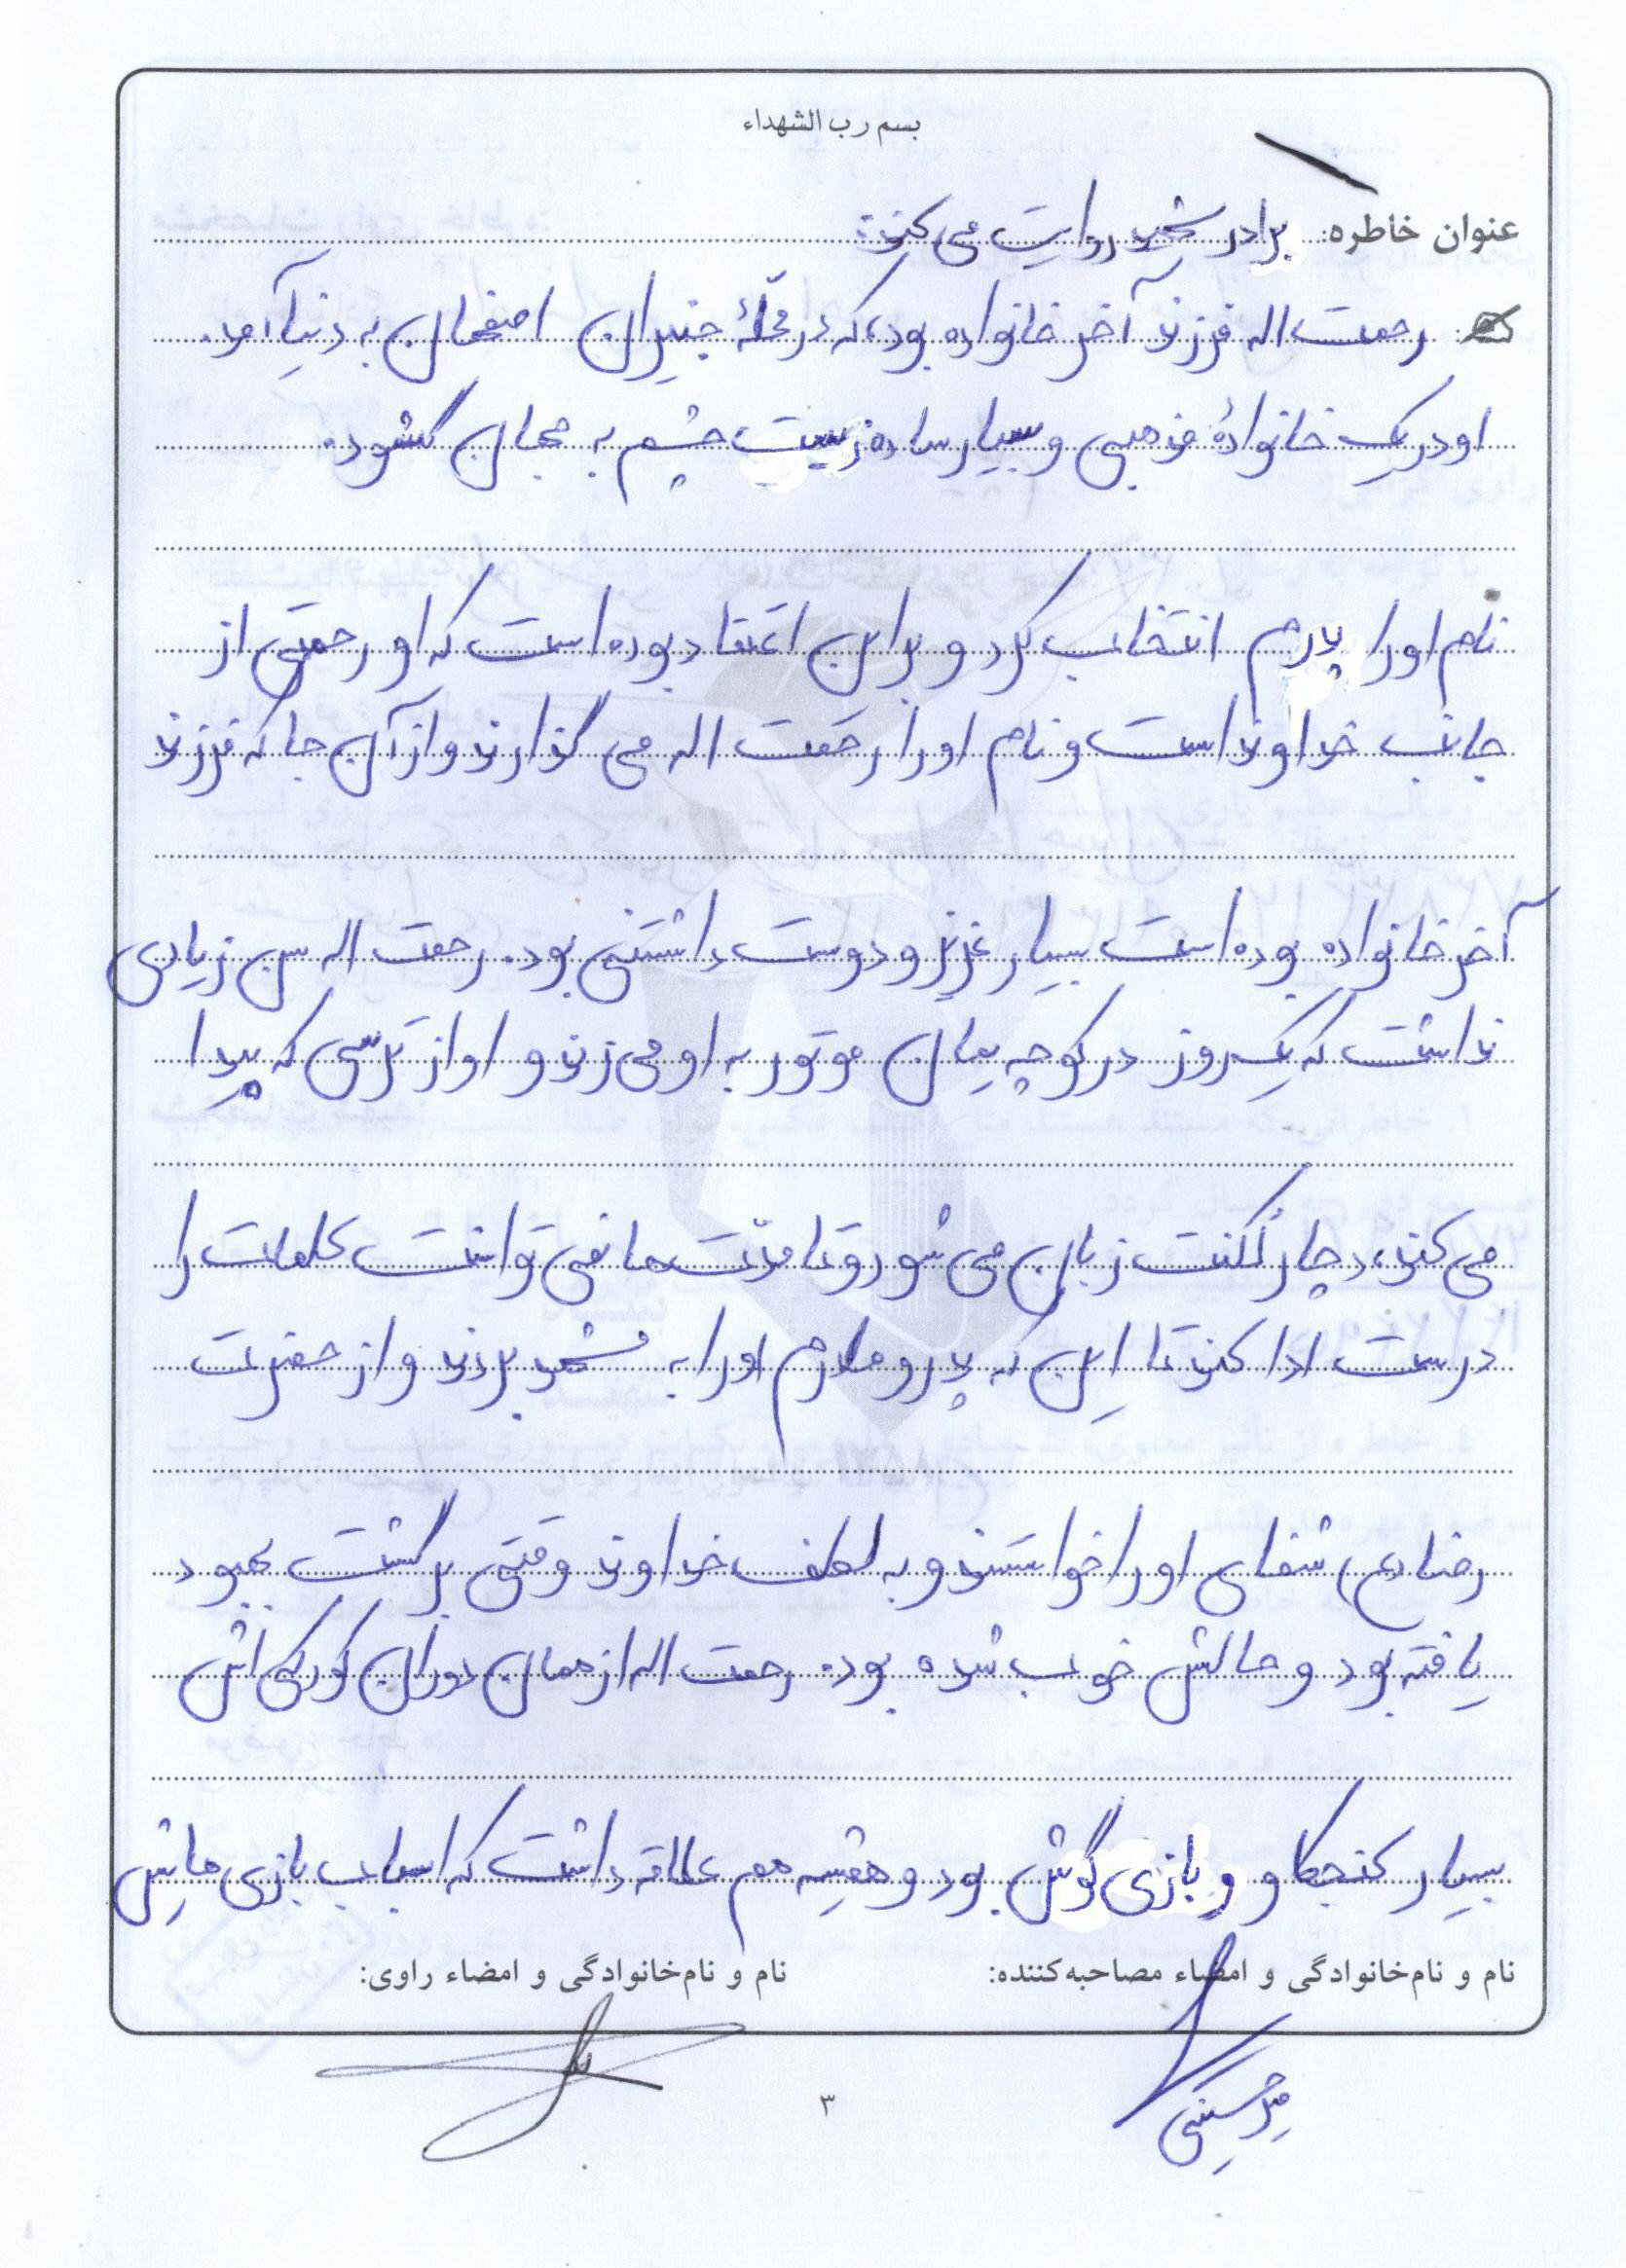 بسم رب الشهداء
عنوان خاطره: برادر شهید روایت می کند:
رحمت اله فرزند آخر خانواده بود، که در محلّۀ جنیران اصفهان به دنیا آمد.
او در یک خانوادۀ مذهبی و بسیار ساده زیست چشم به جهان گشود.
نام او را پدرم انتخاب کرد و بر این اعتقاد بوده است که او رحمتی از
جانب خداوند است و نام او را رحمت اله می گذارند و از آن جا که فرزند
آخر خانواده بوده است بسیار عزیز و دوست داشتنی بود. رحمت اله سن زیادی
نداشت که یک روز در کوچه یمان موتور به او می زند و او از ترسی که پیدا
می کند، دچار لکنت زبان می شود و تا مدّت ها نمی توانست کلمات را
درست ادا کند تا این که پدر و مادرم او را به مشهد بردند و از حضرت
رضا (ع) شفای او را خواستند و به لطف خداوند وقتی برگشت بهبود
یافته بود و حالش خوب شده بود. رحمت اله از همان دوران کودکی اش
بسیار کنجکاو و بازی گوش بود و همیشه هم علاقه داشت که اسباب بازی هایش
نام و نام خانوادگی و امضاء مصاحبه کننده:
نام و نام خانوادگی و امضاء راوی:
میرحسینی
۳